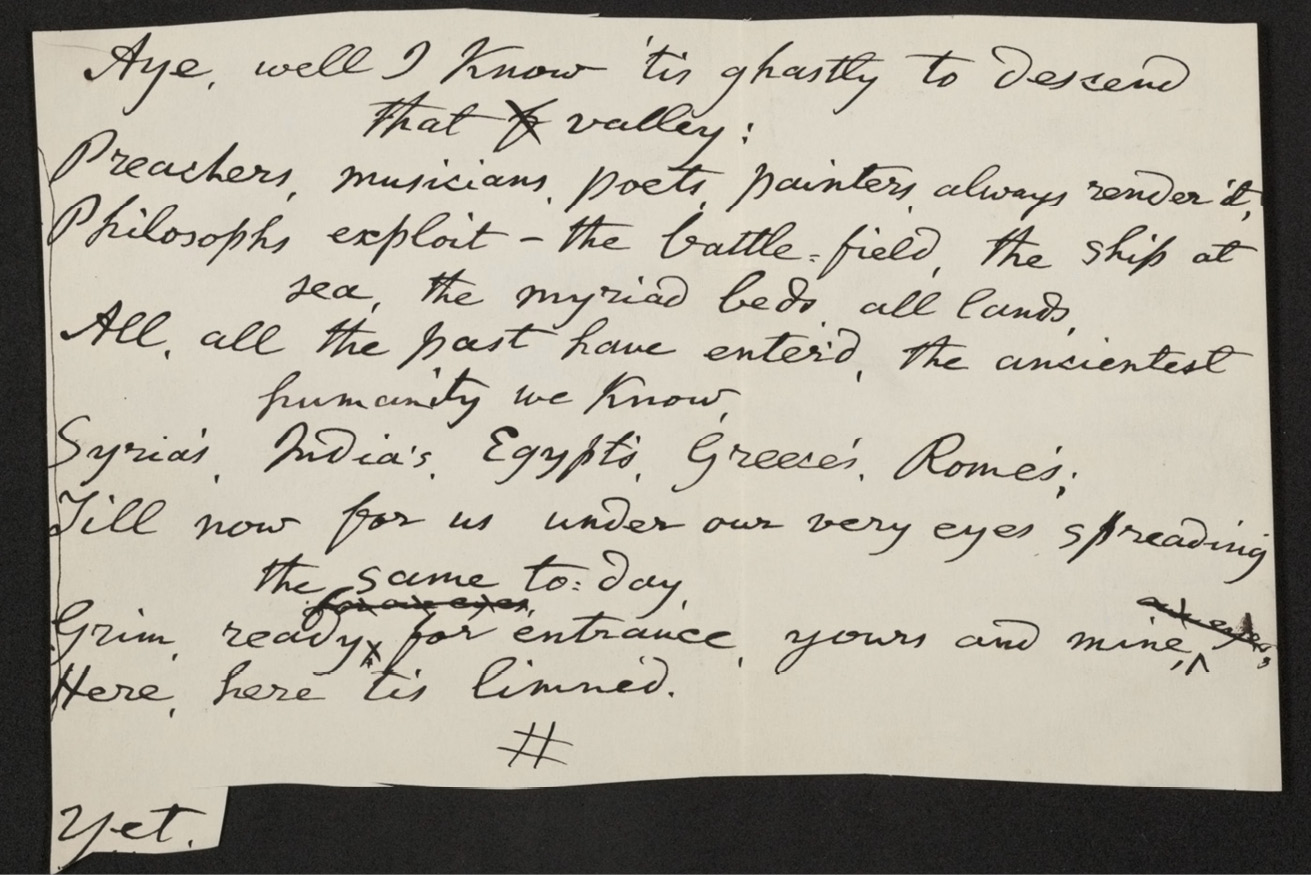 Aye, well I know 'tis ghastly to descend
that valley:
Preachers, musicians, poets, painters, always render it,
Philosophs exploit – the battle-field, the ship at
sea, the myriad beds, all lands,
All, all the past have enter'd, the ancientest
humanity we know,
Syria's, India's, Egypt's, Greece's, Rome's;
Till now for us under our very eyes spreading
the same to-day,
for our eyes,
Grim, ready, for entrance, yours and mine,
Here, here 'tis limn'd.
#
Yet.